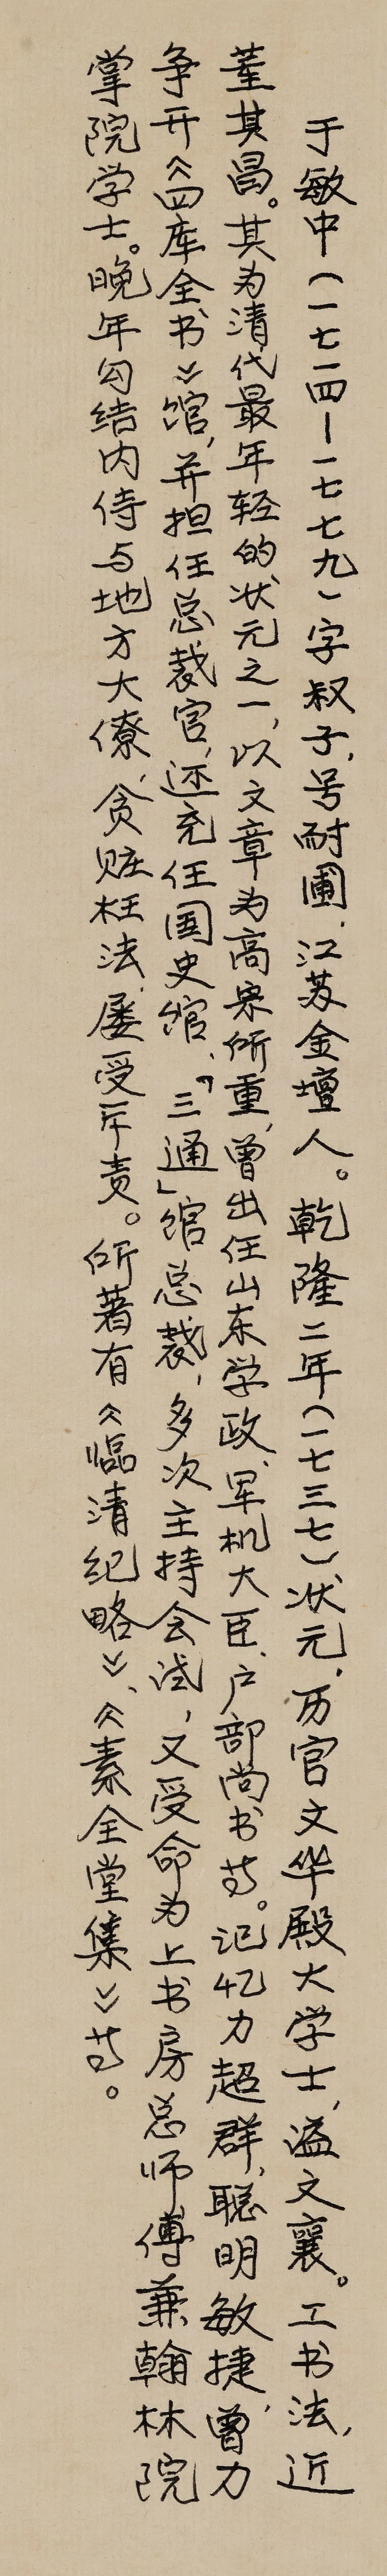 于敏中(一七一四—一七七九)字叔子,号耐圃,江苏金壇人。乾隆二年(一七三七)状元,历官文华殿大学士,谥文襄。工书法,近
董其昌。其为清代最年轻的状元之一,以文章为高宗所重,曾出任山东学政、军机大臣、户部尚书等。记忆力超群,聪明敏捷,曾力
争开《四库全书》馆,并担任总裁官,还充任国史馆、「三通」馆总裁,多次主持会试,又受命为上书房总师傅兼翰林院
掌院学士。晚年勾结内侍与地方大僚,贪赃枉法,屡受斥责。所著有《临清纪略》、《素全堂集》等。